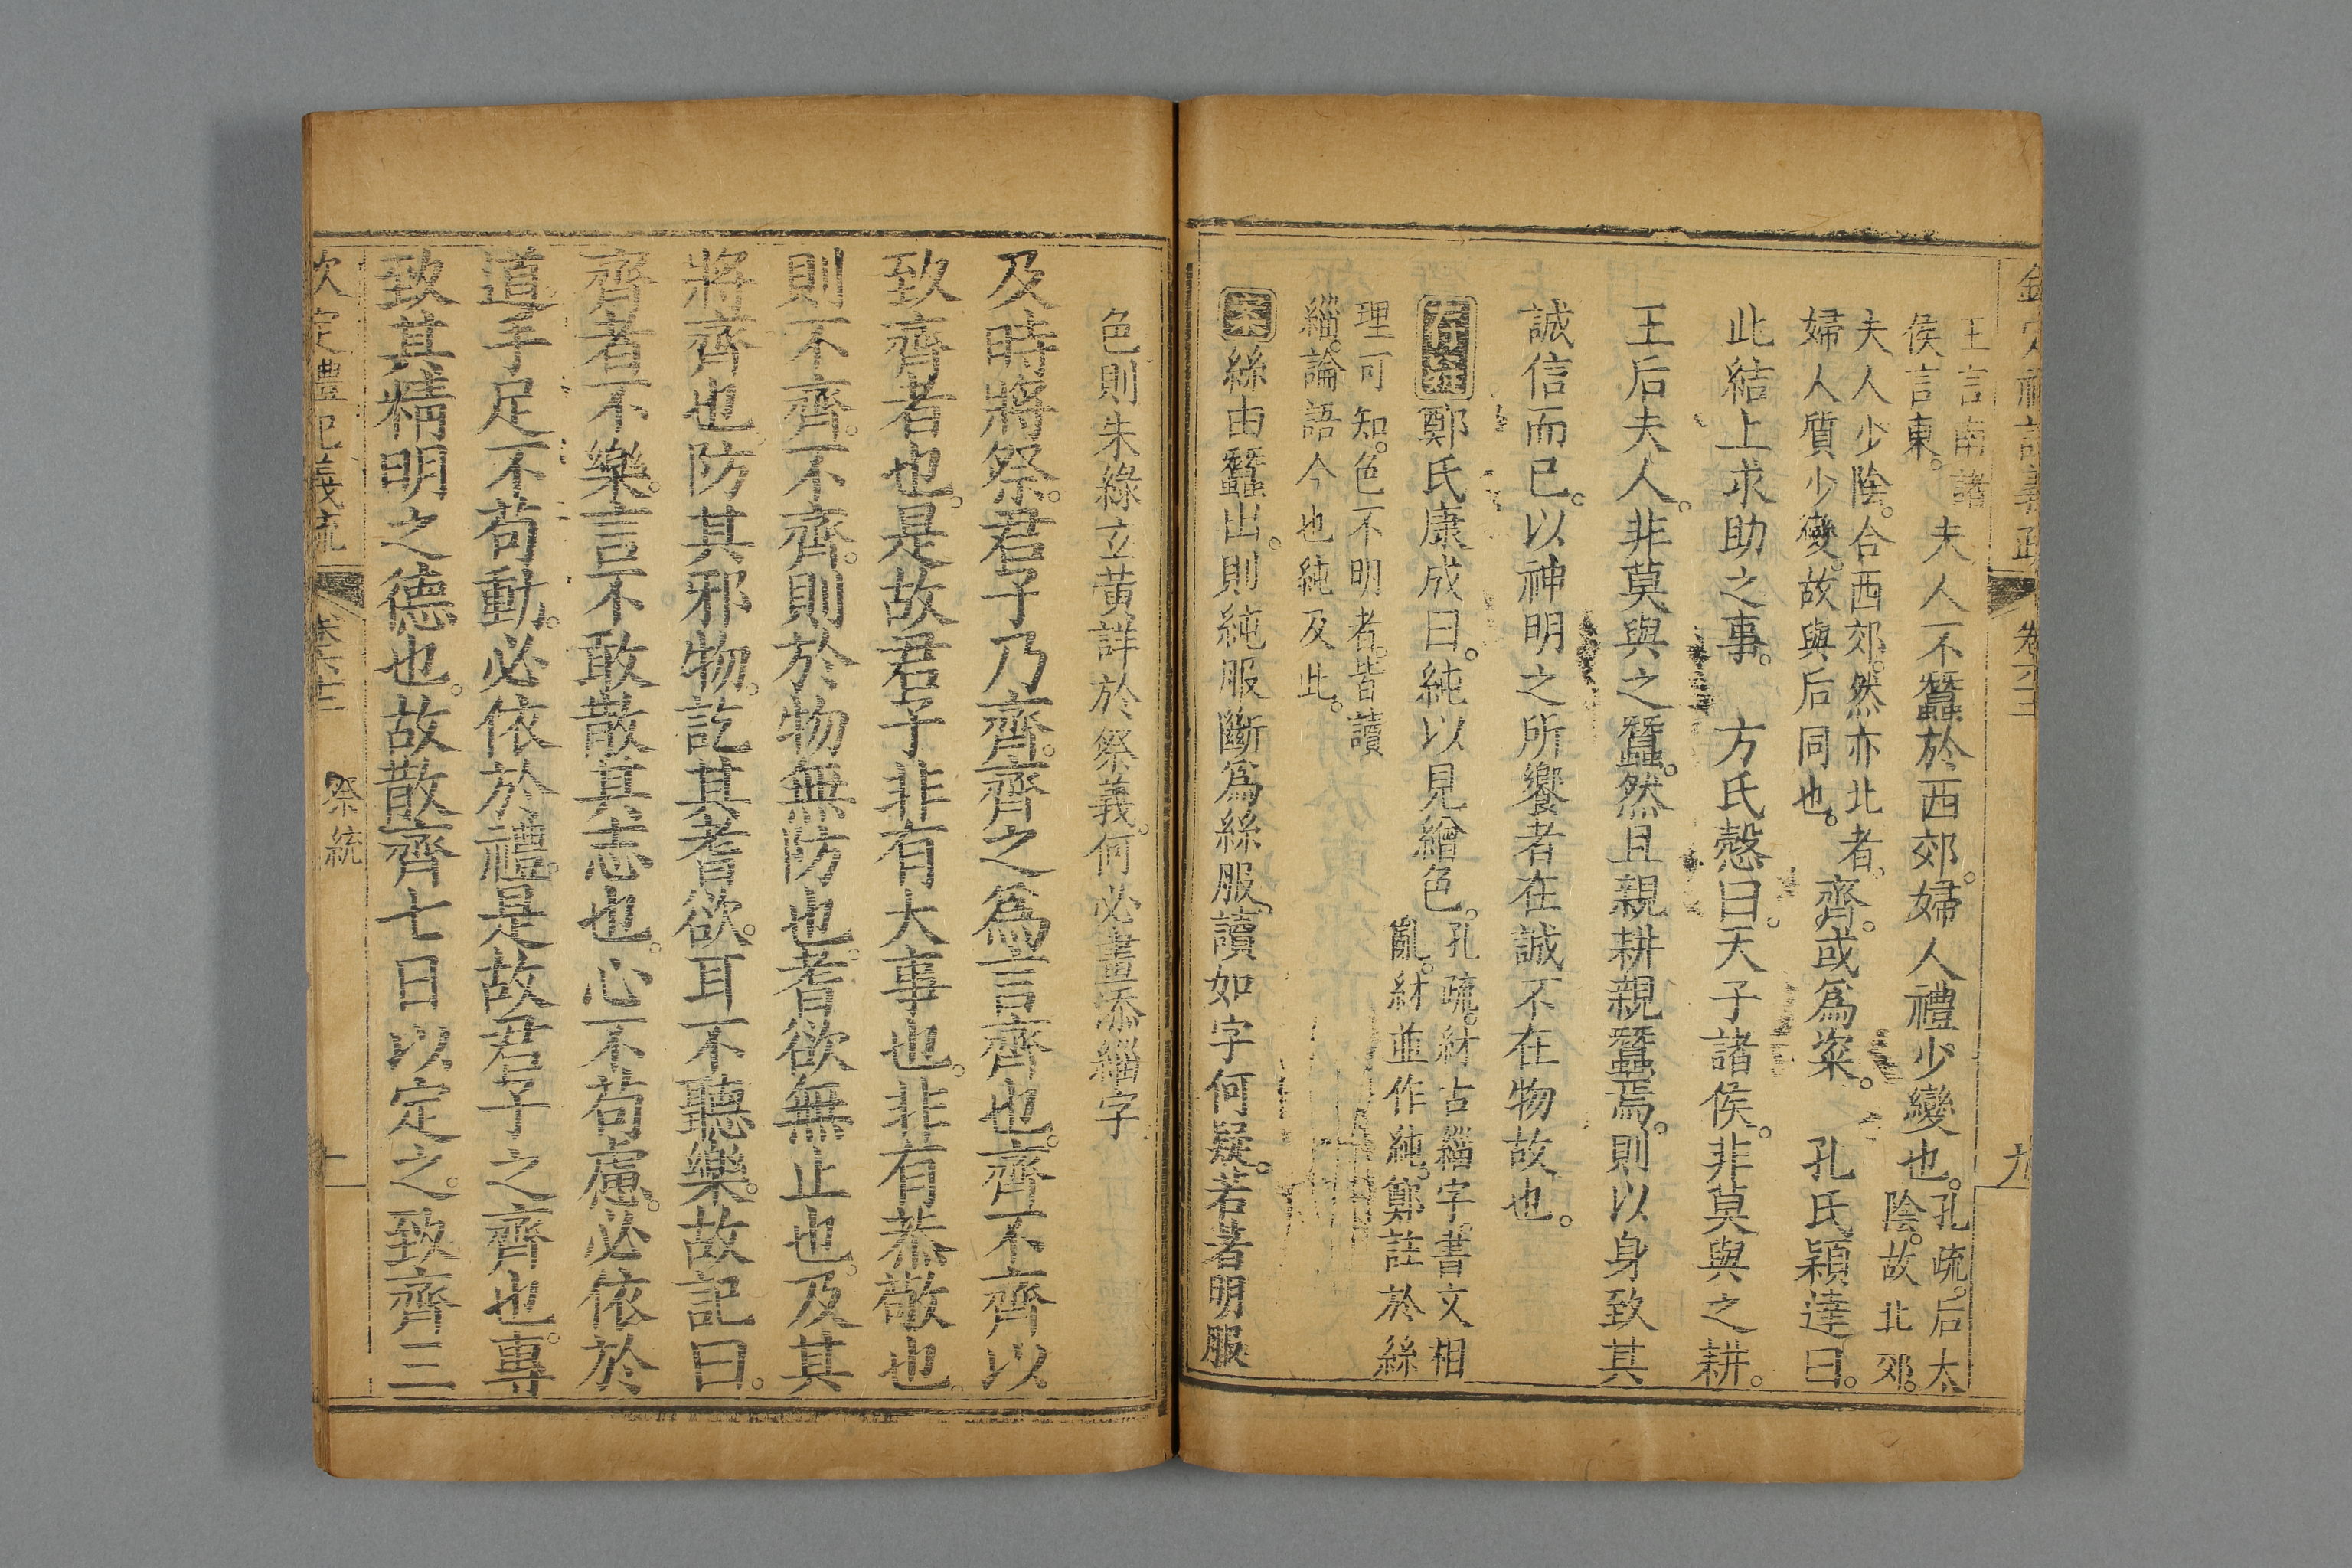 王言南諸
侯言東。
夫人不蠶於西郊。婦人禮少變也。
孔疏。后太
陰。故北郊。
夫人少陰。合西郊。然亦北者。
婦人質少變。故與后同也。
齊。或爲粢。 孔氏穎達曰。
此結上求助之事。 方氏慤曰。天子諸侯。非莫與之耕。
王后夫人。非莫與之蠶。然且親耕親蠶焉。則以身致其
誠信而已。以神明之所饗者在誠不在物故也。
鄭氏康成曰。純以見繒色。
孔疏。紂古緇字。書文相
亂。紂並作純。鄭註於絲
理可知。色不明者。皆讀
緇。論語今也純及此。
案絲由蠶出。則純服斷爲絲服。讀如字何疑。若著明服
色則朱綠玄黃詳於祭義。何必畫添緇字
及時將祭。君子乃齊。齊之爲言齊也。齊不齊以
致齊者也。是故君子非有大事也。非有恭敬也。
則不齊。不齊。則於物無防也。耆欲無止也。及其
將齊也防其邪物。訖其耆欲。耳不聽樂。故記曰。
齊者不樂。言不敢散其志也。心不苟慮。必依於
道手足不苟動。必依於禮。是故君子之齊也。專
致其精明之德也。故散齊七日以定之。致齊三
欽定禮記義疏 卷六十三 祭統 十
欽定禮記義疏 卷六十三 九